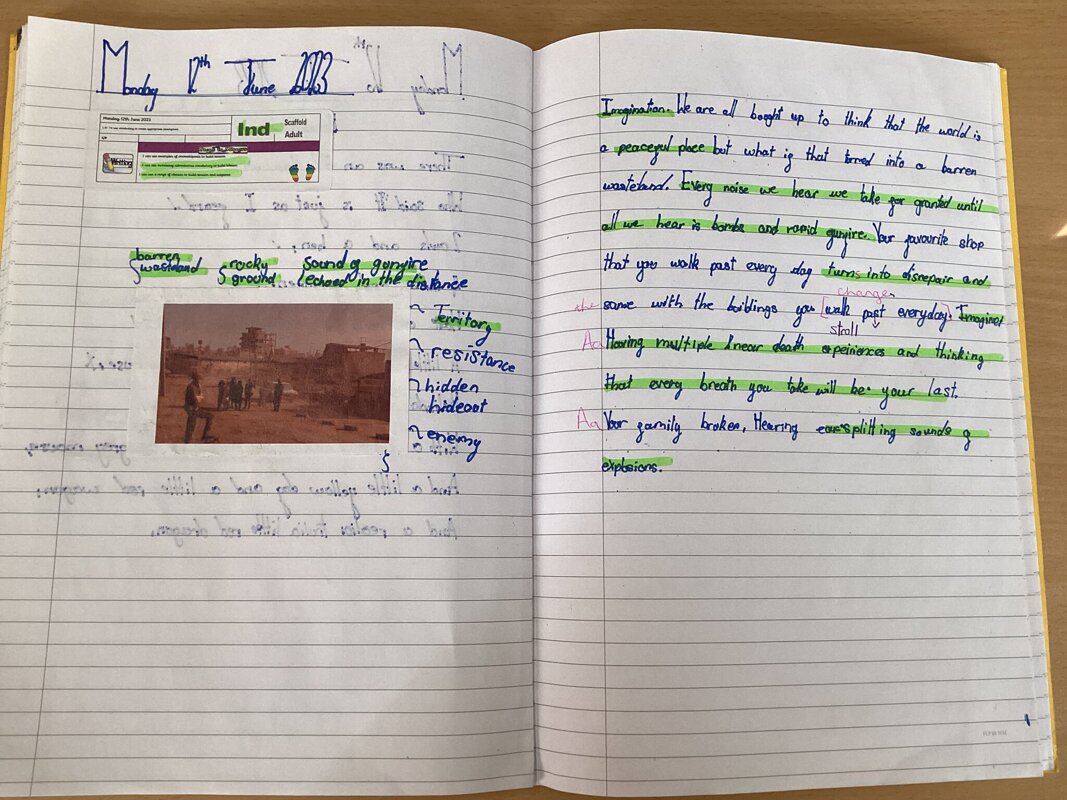 Monday 12th June 2023
Monday 12th June 2023
Ind
Scaffold
Adult
Writing
I can use a range of clauses to build tension and suspense
barren
wasteland
rocky
ground
Sound of gunfire
echoed in the distance
Territory
resistance
hidden
hideout
enemy
Imagination. We are all bought up to think that the world is
a peaceful place but what if that turned into a barren
wasteland. Every noise we hear we take for granted until
all we hear is bombs and rapid gunfire. Your favourite shop
that you walk past every day turns into disrepair and
change
the same with the buildings you [walk past everyday]. Imagine!
stroll
Aa Having multiple near death experiences and thinking
that every breath you take will be your last.
Aa Your family broken, Hearing earsplitting sounds of
explosions.